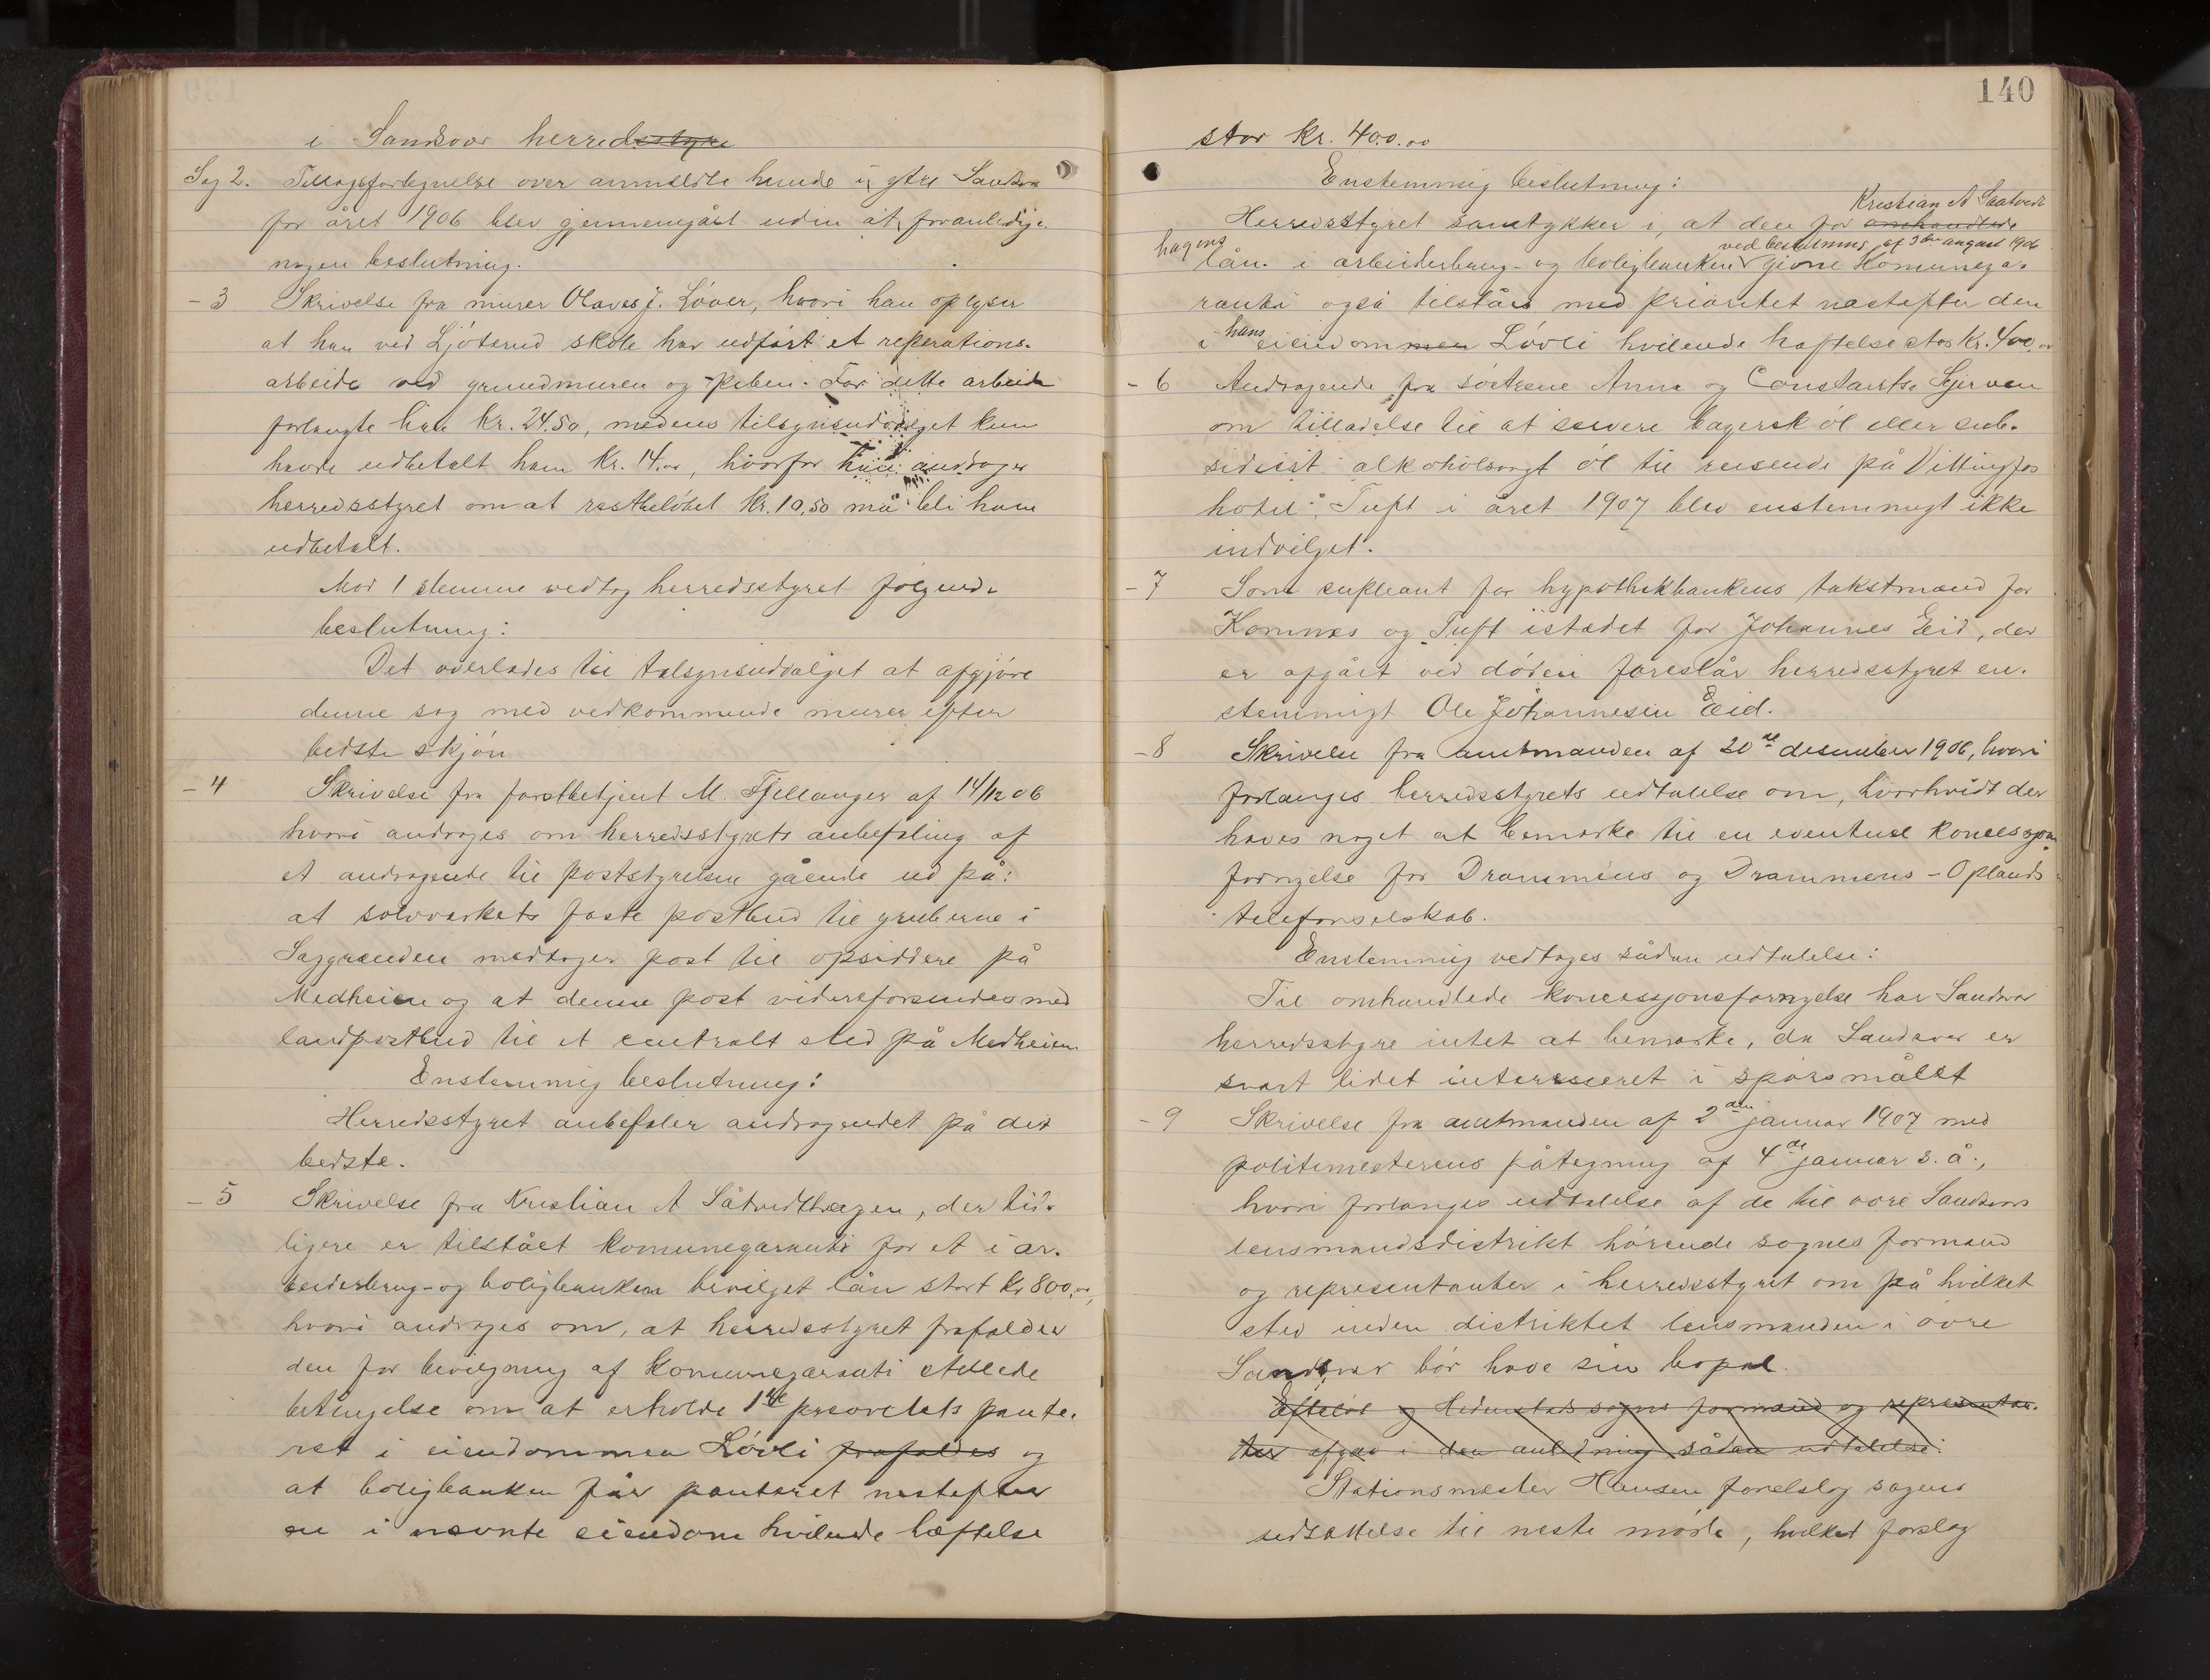 i Sandsvær herredsstyre
Sag 2. Tillægsfortegnelse over anmeldte hunde i ytre Sandsvær
for året 1906 blev gjennemgået uden at foranledige
nogen beslutning.
- 3 Skrivelse fra murer Olaves J. Løver, hvori han oplyser
at han ved Ljøterud skole har udført et reperations-
arbeide ved grundmuren og piben. For dette arbeide
forlangte han kr. 24.50, medens tilsynsudvalget kun
havde udbetalt ham kr. 14.00, hvorfor han andrager
herredsstyret om at restbeløbet kr. 10.50 må bli ham
udbetalt.
Mod 1 stemme vedtog herredsstyret følgende
beslutning:
Det overlades til tilsynsudvalget at afgjøre
denne sag med vedkommende murer efter
bedste skjøn
- 4 Skrivelse fra forstbetjent M. Fjellanger af 14/12 06
hvori andrages om herredsstyrets anbefaling af
et andragende til poststyrelsen gående ud på:
at sølvværkets faste postbud til gruberne i
Saggrænden medtager post til opsiddere på
Medheien og at denne post videreforsendes med
landpostbud til et centralt sted på Medheien.
Enstemmig beslutning:
Herredsstyret anbefaler andragendet på det
bedste.
- 5 Skrivelse fra Kristian A Såtvedthagen, der tid-
ligere er tilstået komunegaranti for et i ar-
beiderbrug- og boligbanken bevilget lån stort kr 800.00,
hvori andrages om, at herredsstyret frafalder
den for bevilgning af komunegaranti stillede
betingelse om at erholde 1ste prioritets pante-
ret i eiendommen Løvli frafaldes og
at boligbanken får panteret nestefter
en i nævnte eiendom hvilende hæftelse
140
stor kr. 400.00
Enstemmig beslutning:
Kristian A Saatvedt
Herredsstyret samtykker i, at den for omhandlede
hagens ved beslutning af 3die august 1906
lån i arbeiderbrug- og boligbanken givne komunega-
ranti også tilståes med prioritet nestefter den
i hans eiendommen Løvli hvilende hæftelse stor kr. 400.00
- 6 Andragende fra søstrene Anna og Constantse Skjerven
om tilladelse til at servere bayersk øl eller sub-
sidiært alkoholsvagt øl til reisende på Vittingfos
hotel, Tuft i året 1907 blev enstemmigt ikke
indvilget.
- 7 Som supleant for hypothekbankens takstmænd for
Komnes og Tuft istædet for Johannes Eid, der
er afgået ved døden foreslår herredsstyret en-
stemmigt Ole Johannesen Eid.
- 8 Skrivelse fra amtmanden af 20de desember 1906, hvori
forlanges herredsstyrets udtalelse om, hvorhvidt der
haves noget at bemærke til en eventuel koncessjons
fornyelse for Drammens og Drammens - Oplands
telefonselskab.
Enstemmig vedtages sådan udtalelse:
Til omhandlede koncessjonsfornyelse har Sandsvær
herredsstyre intet at bemærke, da Sandsvær er
svært lidet interesseret i spørsmålet
- 9 Skrivelse fra amtmanden af 2den januar 1907 med
politimesterens påtegning af 4de januar s. å.,
hvori forlanges udtalelse af de til øvre Sandsværs
lensmandsdistrikt hørende sognes formænd
og representanter i herredsstyret om på hvilket
sted inden distriktet lensmanden i øvre
Sandsvær bør have sin bopæl.
Efteløt og Hedenstads sogns formænd og representan-
ter afgav i den anledning sådan udtalelse:
Stationsmester Hansen foreslog sagens
udsættelse til neste møde, hvilket forslag